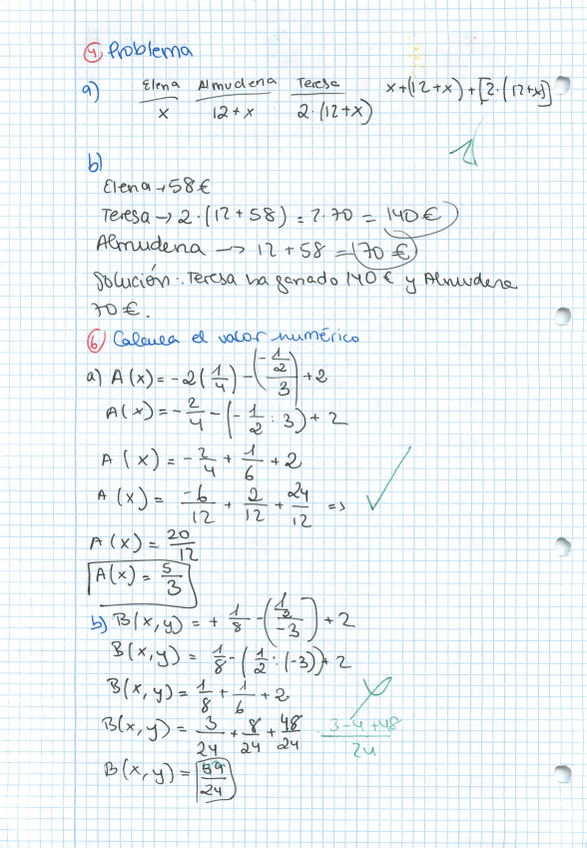 ④ Problema
a) Elena/x Almudena/12+x Teresa/2·(12+x) x+(12+x)+[2·(12+x)]
1
b)
Elena → 58€
Teresa → 2·(12+58) = 2·70 = 140€
Almudena → 12+58 = 70€
Solución: Teresa ha ganado 140€ y Almudena
70€.
⑥ Calcula el valor numérico
a) A(x) = -2(1/4) - ((-1/2)/3) + 2
A(x) = -2/4 - (-1/2 : 3) + 2
A(x) = -2/4 + 1/6 + 2
A(x) = -6/12 + 2/12 + 24/12 =>
A(x) = 20/12
A(x) = 5/3
b) B(x,y) = + 1/8 - ((1/2)/-3) + 2
B(x,y) = 1/8 - (1/2 : (-3)) + 2
B(x,y) = 1/8 + 1/6 + 2
B(x,y) = 3/24 + 8/24 + 48/24 3-4+48/24
B(x,y) = 59/24